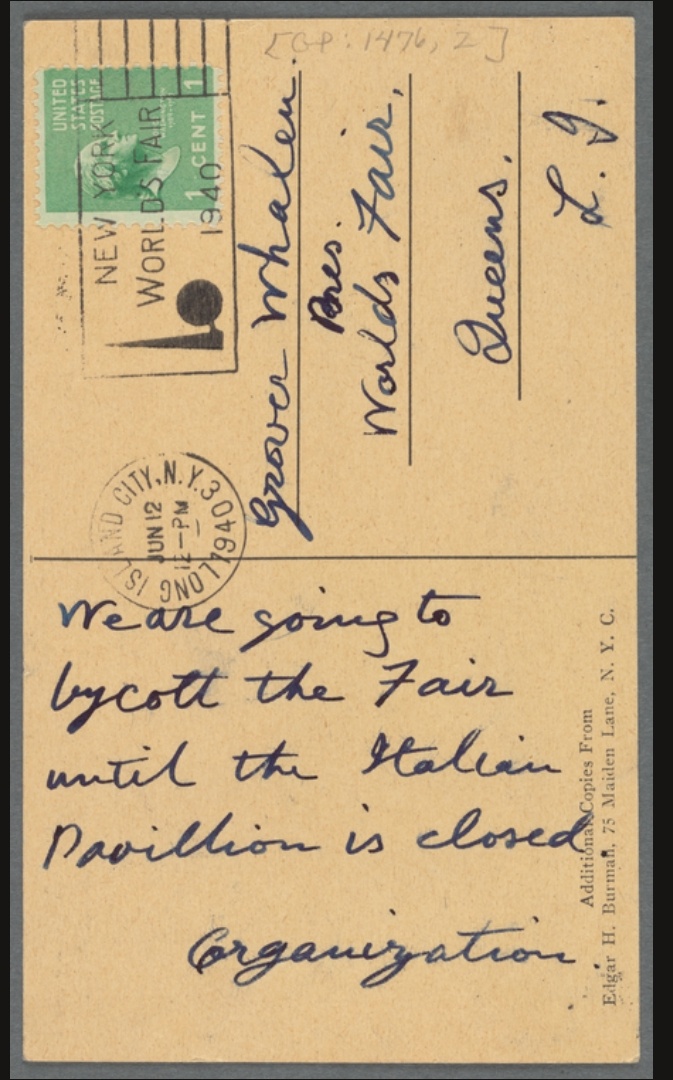 [GP: 1476, 2]
UNITED
STATES
POSTAGE
1 CENT 1
NEW YORK
WORLD'S FAIR
1940
LONG ISLAND CITY, N.Y. 30
JUN 12
12-PM
1940
Grover Whalen.
Pres.
Worlds Fair,
Queens,
L. I.
We are going to
bycott the Fair
until the Italian
Pavillion is closed.
Organization.
Additional Copies From
Edgar H. Burman, 75 Maiden Lane, N. Y. C.